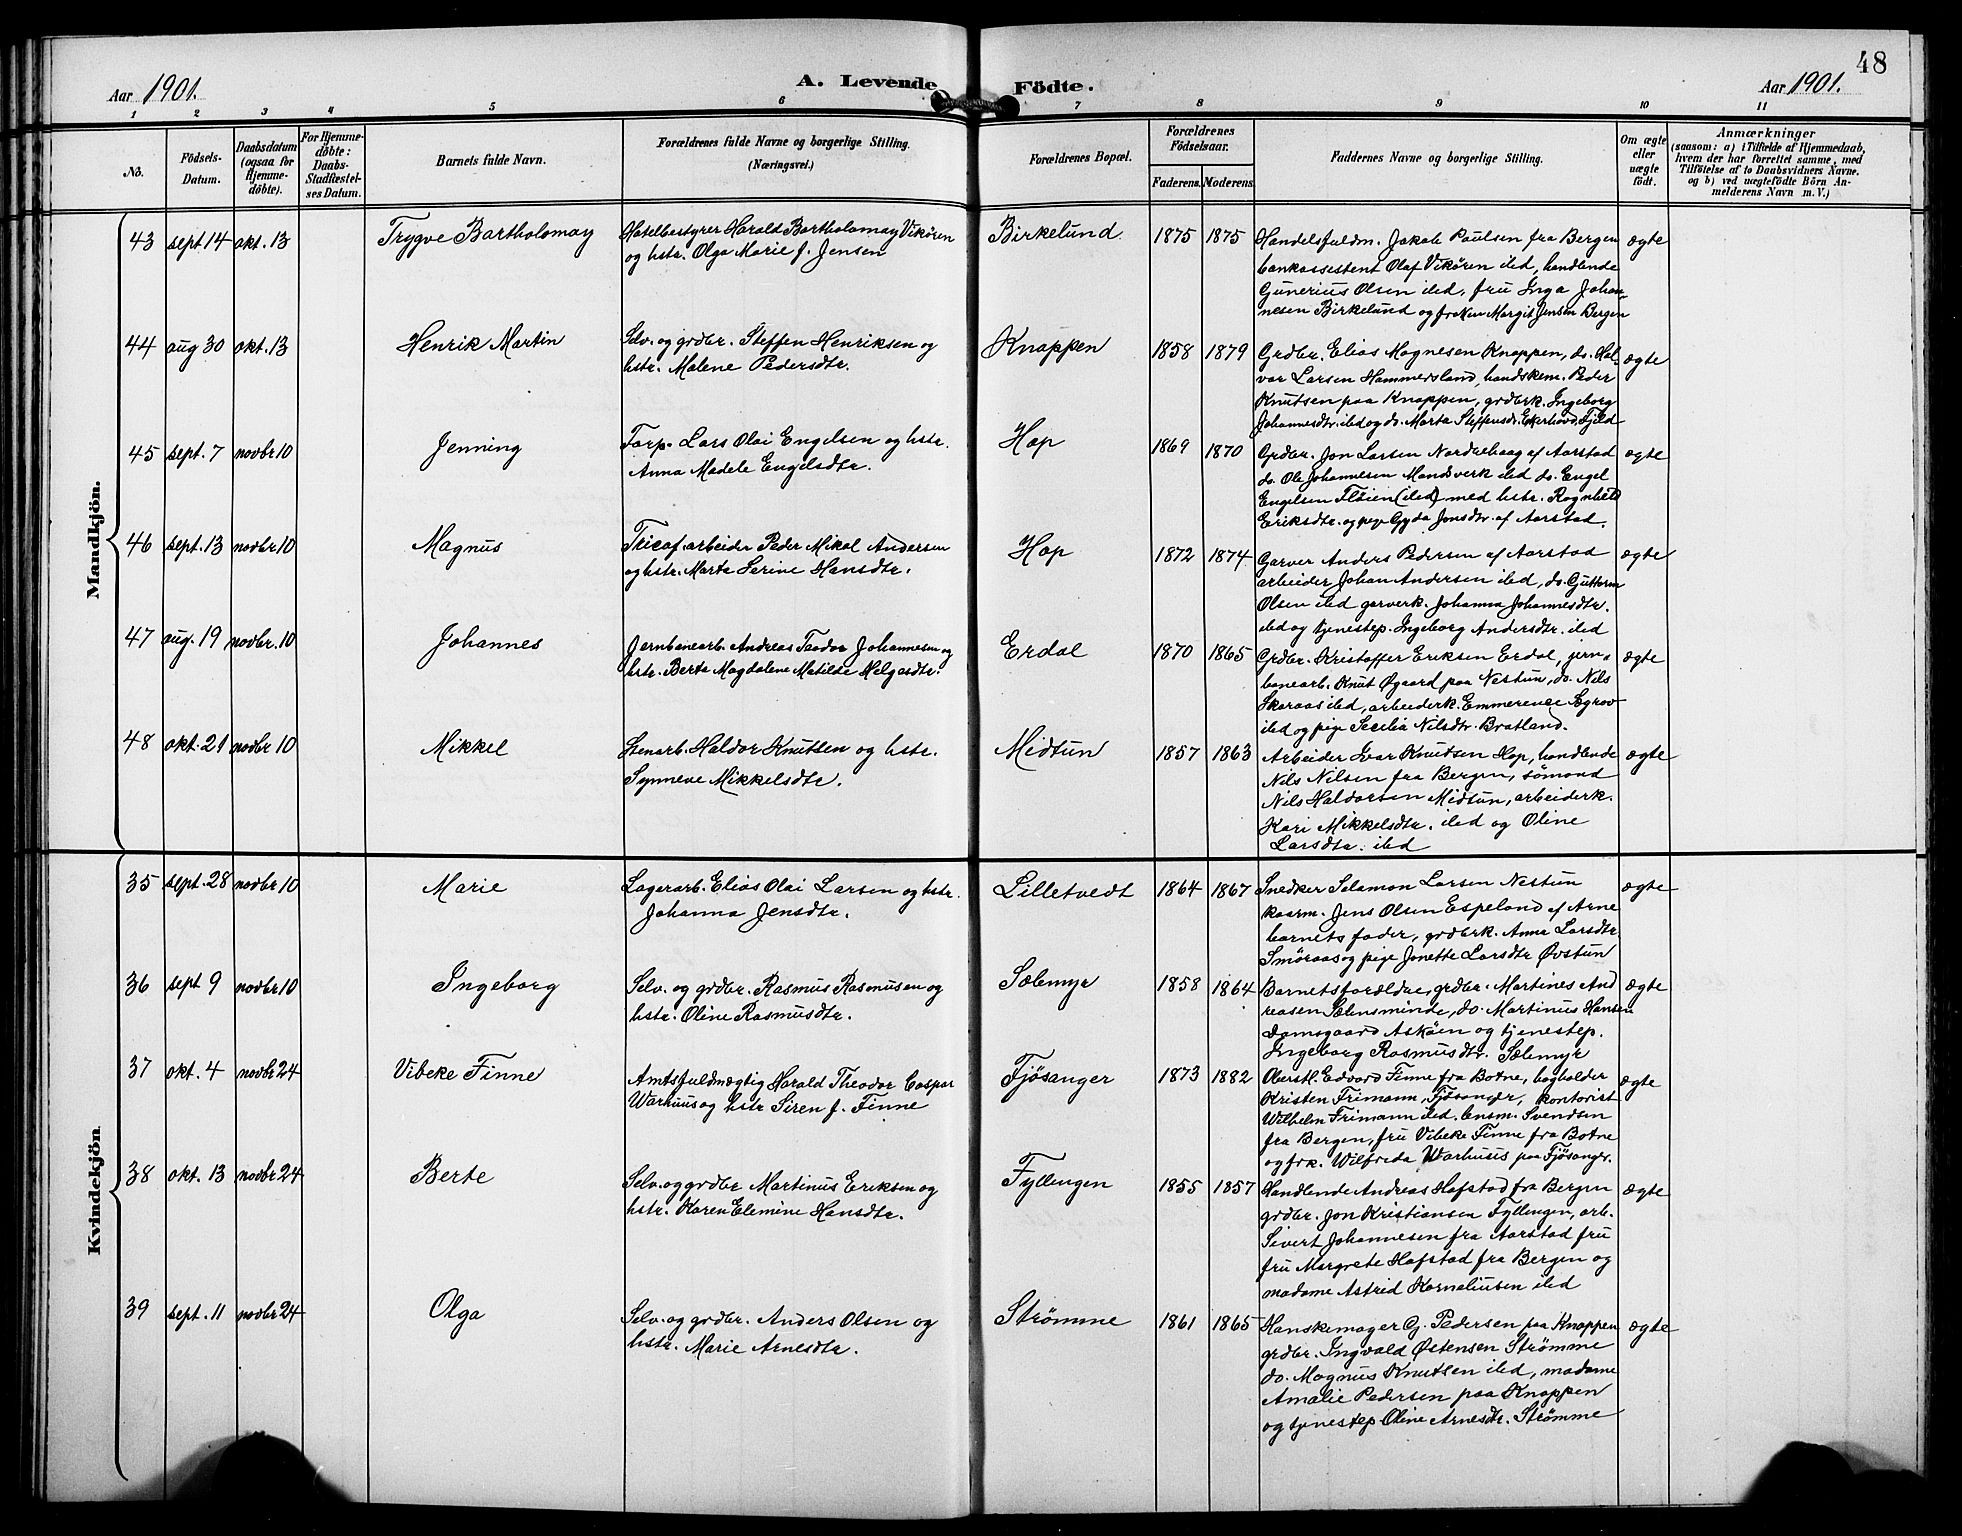 48
Aar 1901.
A. Levende Födte.
Aar 1901.
1 2 3 4 5 6 7 8 9 10 11
No.
Födsels-
Datum.
Daabsdatum
(ogsaa for
Hjemme-
döbte).
For Hjemme-
döbte:
Daabs-
Stadfæstel-
ses Datum.
Barnets fulde Navn.
Forældrenes fulde Navne og borgerlige Stilling.
(Næringsvei.)
Forældrenes Bopæl.
Forældrenes
Födselsaar.
Faderens. Moderens.
Faddernes Navne og borgerlige Stilling.
Om ægte
eller
uægte
födt.
Anmærkninger
(saasom: a) i Tilfælde af Hjemmedaab,
hvem der har forrettet samme, med
Tilföielse af to Daabsvidners Navne.
og b) ved uægtefödte Börn An-
melderens Navn m. V.)
Mandkjön.
43 sept 14 okt. 13 Trygve Bartholomay
Hotelbestyrer Harald Bartholomay Vikören
og hstr. Olga Marie f. Jensen
Birkelund. 1875 1875
Handelsfuldm. Jakob Paulsen fra Bergen
bankassistent Olaf Vikören ibd, handlende
Gunerius Olsen ibd, fru Inga Johan-
nesen Birkelund og frøken Margit Jensen Bergen
ægte
44 aug 30 okt. 13 Henrik Martin
Selv. og grdbr. Steffen Henriksen og
hstr. Malene Pedersdtr.
Knappen 1858 1879
Grdbr. Elias Magnesen Knappen, do. Hal-
vor Larsen Hammersland, handskem. Peder
Knutsen paa Knappen, grdbrk. Ingeborg
Johannesdtr. ibd og do. Marta Steffensdr. Ekerhovd, Fjeld
ægte
45 sept. 7 novbr 10 Jenning
Torp. Lars Olai Engelsen og hstr.
Anna Madele Engelsdtr.
Hop 1869 1870
Grdbr. Jon Larsen Nordrehaug af Aarstad
do. Ole Johannesen Mandsverk ibd do. Engel
Engelsen Fløien (ibd) med hstr. Ragnhild
Eriksdtr. og pige Gyda Jonsdtr. af Aarstad.
ægte
46 sept. 13 novbr 10 Magnus
Tricof. arbeider Peder Mikal Andersen
og hstr. Marta Serine Hansdtr.
Hop 1872 1874
Garver Anders Pedersen af Aarstad
arbeider Johan Andersen ibd, do. Guttorm
Olsen ibd garverk. Johanna Johannesdtr.
ibd og tjenestep. Ingeborg Andersdtr. ibd
ægte
47 aug. 19 novbr. 10 Johannes
Jernbanearb. Andreas Teodor Johannesen og
hstr. Berta Magdalene Matilde Helgesdtr.
Erdal 1870 1865
Grdbr. Kristoffer Eriksen Erdal, jern-
banearb. Knut Øgaard paa Nestun, do. Nils
Skaraas ibd, arbeiderk. Emmerence Søgrov
ibd og pige Secilia Nilsdtr. Bratland.
ægte
48 okt. 21 novbr 10 Mikkel
Stenarb. Haldor Knutsen og hstr.
Synneve Mikkelsdtr.
Midtun 1857 1863
Arbeider Ivar Knudsen Hop, handlende
Nils Nilsen fra Bergen, sömand
Nils Haldorsen Midtun, arbeiderk.
Kari Mikkelsdtr. ibd og Oline
Larsdtr. ibd
ægte
Kvindekjön
35 sept. 28 novbr 10 Marie
Lagerarb. Elias Olai Larsen og hstr.
Johanna Jensdtr.
Lilletvedt 1864 1867
Snedker Salamon Larsen Nestun
kaarm. Jens Olsen Espeland af Arne
barnets fader, grdbrk. Anna Larsdtr
Smöraas og pige Jonette Larsdtr Øvstun
ægte
36 sept 9 novbr 10 Ingeborg
Selv. og grdbr. Rasmus Rasmusen og
hstr. Oline Rasmusdtr.
Sælemyr 1858 1864
Barnets forældre, grdbr. Martines And
reasen Sælensminde, do. Martinus Hansen
Damsgaard Askøen og tjenestep.
Ingeborg Rasmusdtr. Sælemyr
ægte
37 okt. 4 novbr 24 Vibeke Finne
Amtsfuldmægtig Harald Theodor Caspar
Warhuus og hstr Siren f. Finne
Fjösanger 1873 1882
Oberstl. Edvard Finne fra Botne, bogholder
Kristen Frimann, Fjösanger, kontorist
Wilhelm Frimann ibd. lensm. Svendsen
fra Bergen, fru Vibeke Finne fra Botne
og frk. Wilfreda Warhuus paa Fjösanger.
ægte
38 okt. 13 novbr 24 Berte
Selv. og grdbr Martinus Eriksen og
hstr. Karen Elemine Hansdtr.
Fyllingen 1855 1857
Handlende Andreas Hafstad fra Bergen
grdbr. Jon Kristiansen Fyllingen, arb.
Sivert Johannesen fra Aarstad fru
fru Margrete Hafstad fra Bergen og
madame Astrid Korneliusen ibd
ægte
39 sept. 11 novbr 24 Olga
Selv. og grdbr. Anders Olsen og
hstr. Marie Arnesdtr.
Strömme 1861 1865
Hanskemager Cj. Pedersen paa Knappen
grdbr. Ingvald Østensen Strömme
do. Magnus Knutsen ibd, madame
Amalie Pedersen paa Knappen
og tjenestep Oline Arnesdtr. Strömme
ægte